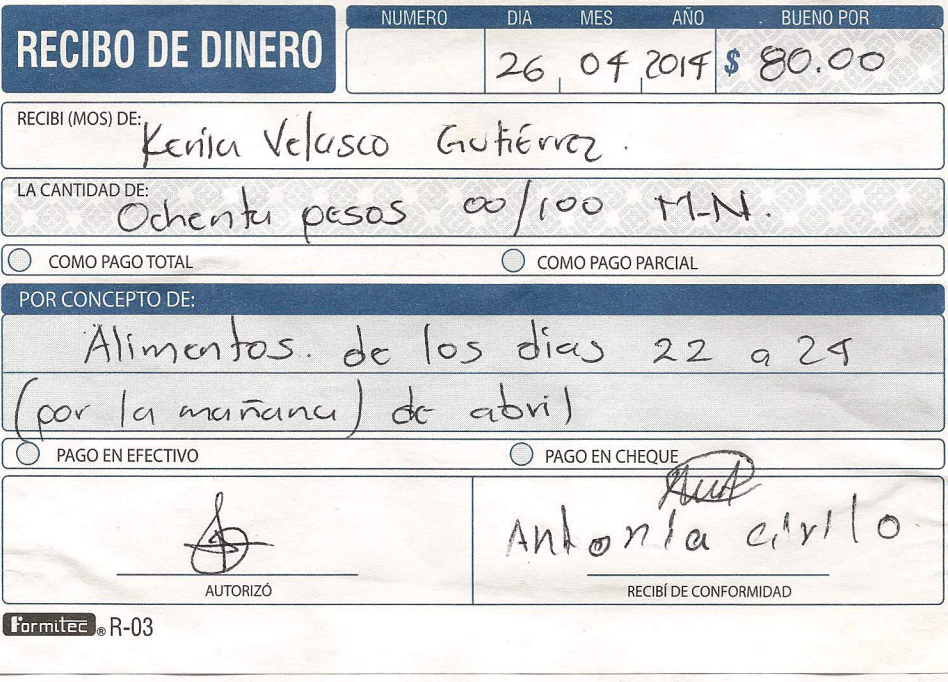 RECIBO DE DINERO
NUMERO DIA MES AÑO BUENO POR
26 04 2014 $ 80.00
RECIBI (MOS) DE: Kenia Velasco Gutiérrez.
LA CANTIDAD DE: Ochenta pesos 00/100 M.N.
COMO PAGO TOTAL COMO PAGO PARCIAL
POR CONCEPTO DE:
Alimentos. de los dias 22 a 24
(por la mañana) de abril
PAGO EN EFECTIVO PAGO EN CHEQUE
Antonia cirilo
AUTORIZÓ RECIBÍ DE CONFORMIDAD
Formitec ® R-03